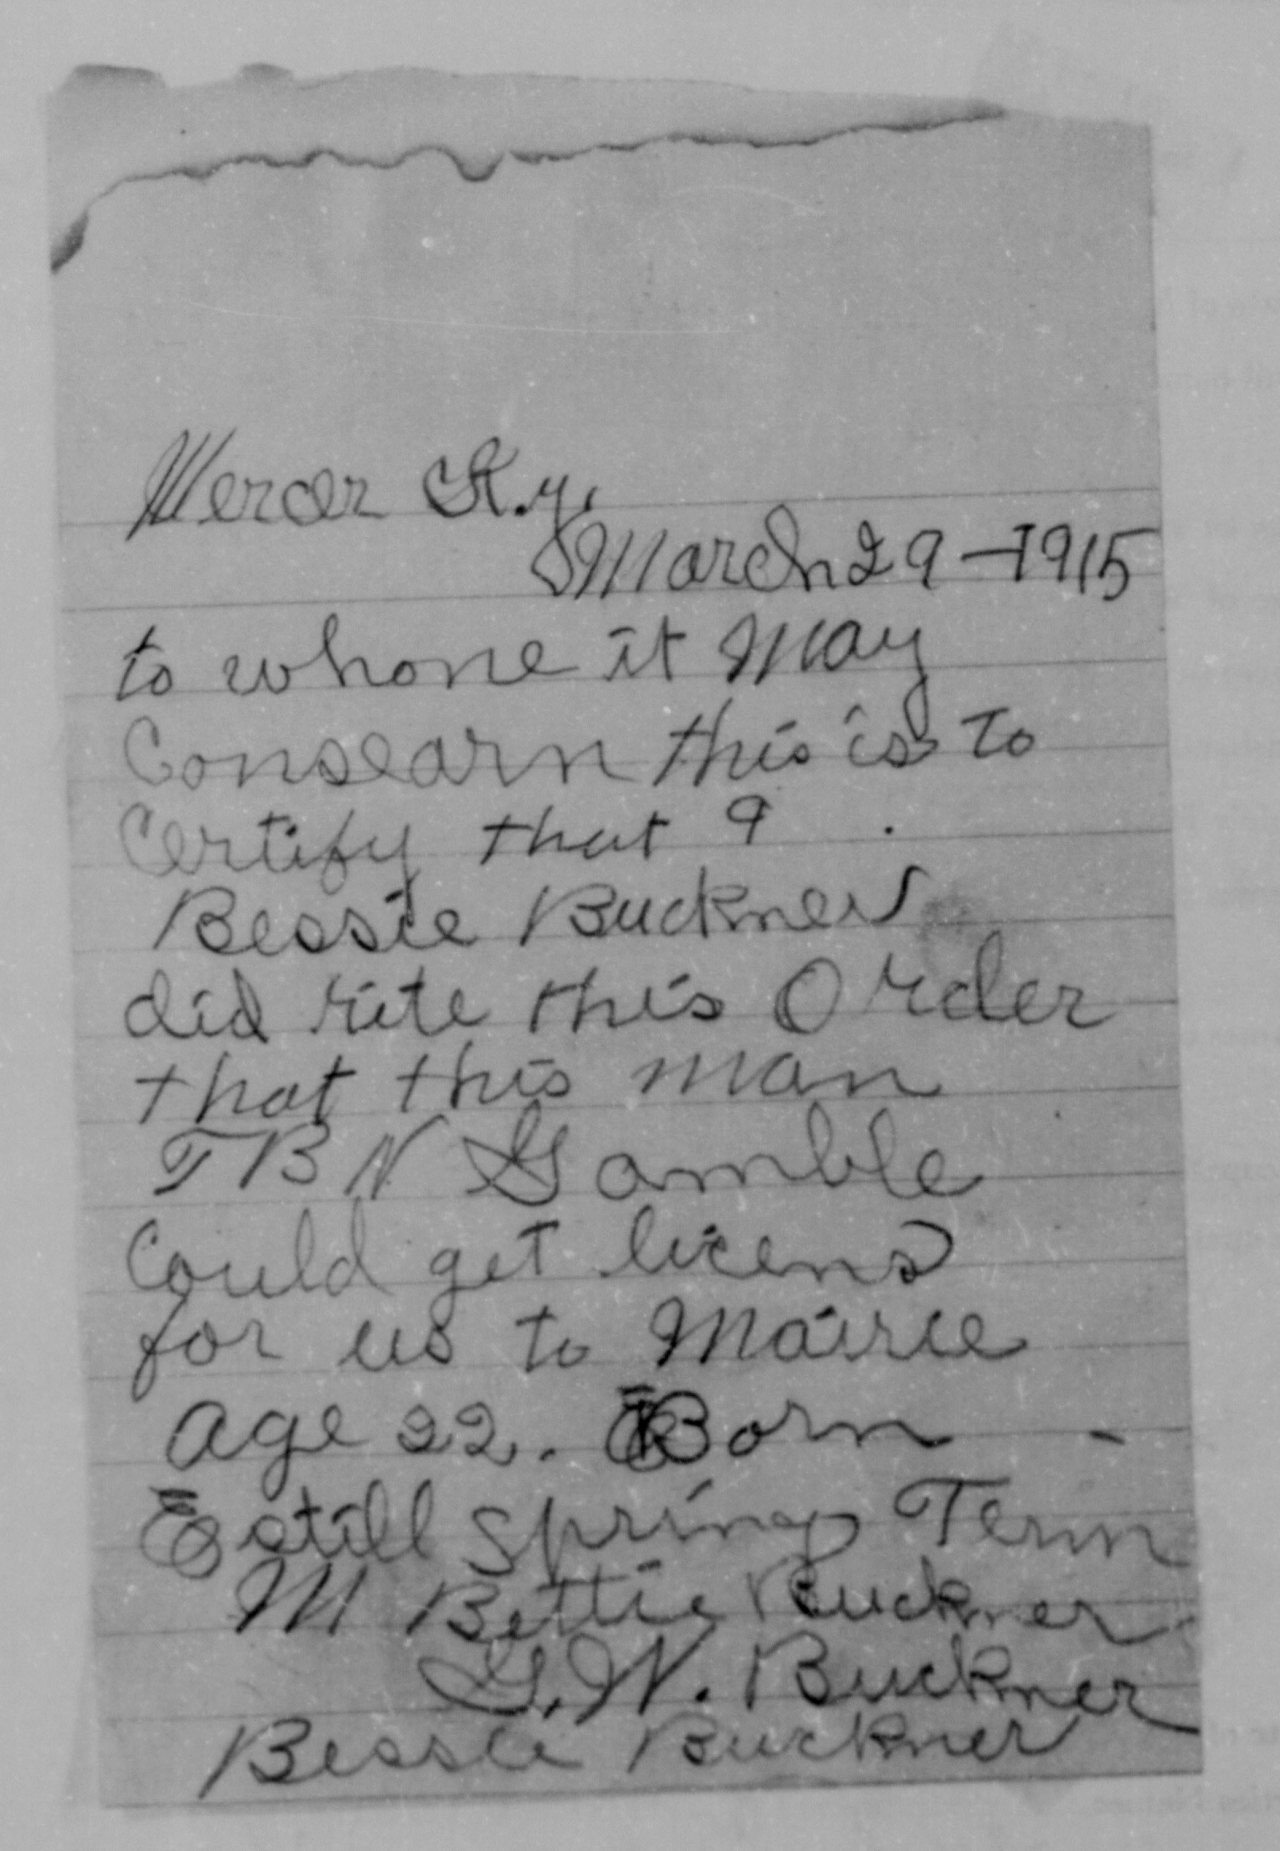 Mercer K.y.
March 29-1915
to whone it May
Consearn this is to
Certify that I
Bessie Buckner
did rite this Order
that this man
T B N Gamble
Could get licens
for us to Mairie
age 22. Born
Estill spring Tenn
M Bettie Buckner
G. W. Buckner
Bessie Buckner